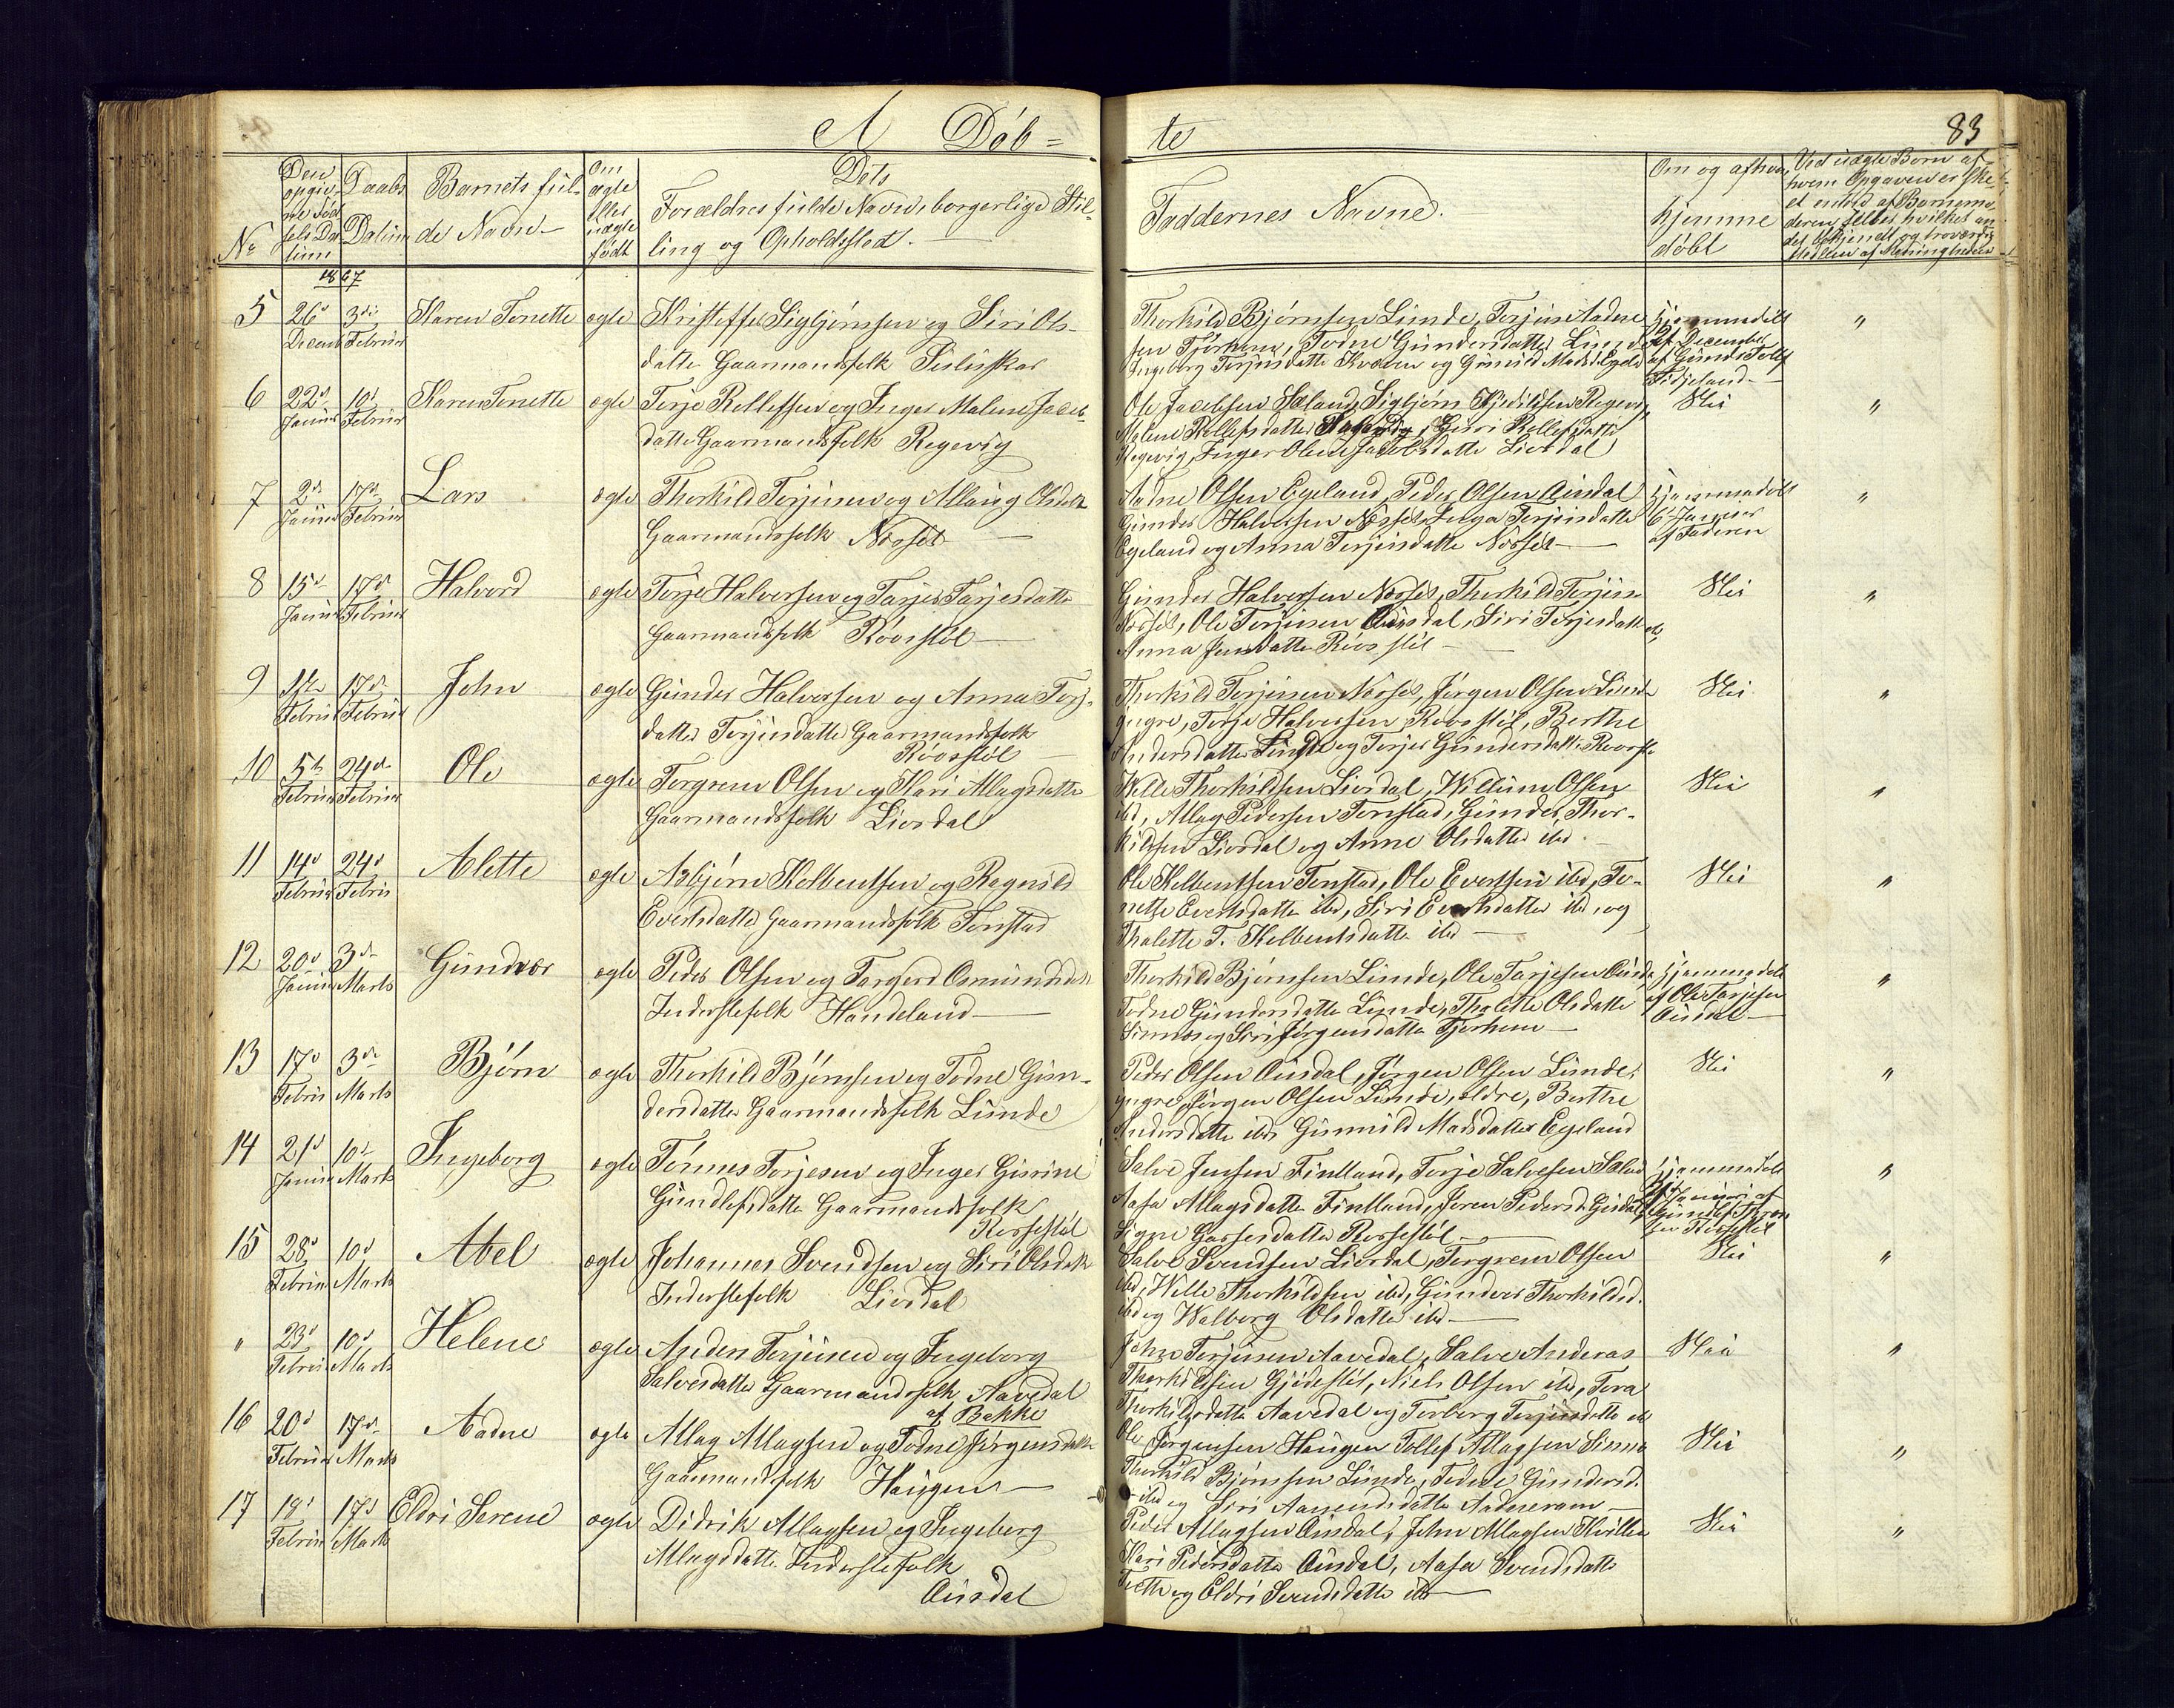 A Döb=
te
83
No
Den opgivne Fødsels Datum
Daabs Datum
Barnets fulde Navn
Om ægte eller uægte født
Dets
Forældres fulde Navn, borgerlige Stilling og Opholdssted.
Faddernes Navne.
Om og af hvem hjemmedøbt
Ved uægte Børn af hvem Opgaven er skeet
1867
5 26d Decemb 3die Februar Karen Tonette ægte Kristoffer Sigbjørnsen og Siri Ols-
datter Gaarmandsfolk
Thorkild Bjørnsen Lunde, Torjus Aadne
sen Tjørhom, Todne Gundersdatter Lunde
Ingeborg Torjusdatter Kvæven og Gunild Madsd Egeland
Hjemmedøbt
December
af Gunder Tollefs
Fidjeland
"
6 22d Januar 10d Februar Karen Tonette ægte Terje Rollefsen og Inger Malene Jacobs-
datter Gaarmandsfolk Regevig
Ole Jacobsen Seland, Sigbjørn Kjedilsen Regevig
Malene Rollefsdatter Regevig, Guri Rollefsdatter
Regevig, Inger Olene Jacobsdatter Liordal
Nei
"
7 2d Januar 17d Februar Lars ægte Thorkild Torjusen og Allaug Olsdatter
Gaarmandsfolk Nossel
Aadne Olsen Egeland, Peder Olsen Ousdal
Gunder Halvorsen Nossel, Inga Torjusdatter
Egeland og Anna Torjusdatter Nossel
Hjemmedøbt
6te Januar
af Faderen
"
8 15d Januar 17d Februar Halvord ægte Torje Halvorsen og Tarjer Tarjesdatter
Gaarmandsfolk Röosstöl
Gunder Halvorsen Nossel, Thorkild Torjusen
Nossel, Ole Torjusen Ousdal, Siri Torjesdatter og
Anna Jensdatter Röosstöl
Nei
"
9 Februar 17d Februar John ægte Gunder Halvorsen og Anna Torj-
datter Torjusdatter Gaarmandsfolk
Röosstöl
Thorkild Torjusen Nossel, Jørgen Olsen Lunde
yngre, Torje Halvorsen Roosstöl, Berthe
Andersdatter Lunde og Torjer Gundersdatter Roosstöl
Nei
"
10 5te Februar 24de Februar Ole ægte Torgrem Olsen og Kari Allagsdatter
Gaarmandsfolk Liordal
Wille Thorkildsen Liordal, Willum Olsen
ibd, Allag Pedersen Tonstad, Gunder Thor-
kildsen Liordal og Anne Olsdatter ibd
Nei
"
11 14d Februar 24d Februar Alette ægte Asbjørn Kolbentsen og Ragnild
Evertsdatter Gaarmandsfolk Tonstad
Ole Kolbentsen Tonstad, Ole Evertsen ibd, To-
nette Evertsdatter ibd, Siri Evertsdatter ibd, og
Thalette T. Kolbentsdatter ibd
Nei
"
12 20d Januar 3d Marts Gundvor ægte Peder Olsen og Torgerd Osmundsdatter
Inderstefolk Handeland
Thorkild Bjørnsen Lunde, Ole Tarjesen Ousdal
Todne Gundersdatter Lunde, Thalette Olsdatter
Sinnes og Siri Jørgensdatter Tjorhom
Hjemmedøbt
af Ole Tarjesen
Ousdal
"
13 17d Februar 3die Marts Bjørn ægte Thorkild Bjørnsen og Todne Gun-
dersdatter Gaarmandsfolk Lunde
Peder Olsen Ousdal, Jørgen Olsen Lunde,
yngre, Jørgen Olsen Lunde, ældre, Berthe
Andersdatter ibd, Gunnild Madsdatter Egeland
Nei
"
14 21d Januar 10d Marts Ingeborg ægte Tönnes Torjesen og Inger Gurine
Gundlefsdatter Gaarmandsfolk
Rossestöl
Salve Jensen Fintland, Torje Salvesen
Aasa Allagsdatter Fintland, Joren Pedersd
Signe Gassesdatter Rossestöl
Hjemmedøbt
Januar af
Rossestöl
"
15 28d Februar 10d Marts Abel ægte Johannes Svendsen og Siri Olsdatter
Inderstefolk Liordal
Salve Svendsen Liordal, Torgrem Olsen
ibd, Wille Thorkildsen ibd, Gundvor Thorkildsd.
ibd og Walborg Olsdatter ibd
Nei
"
" 23d Februar 10d Marts Helene ægte Anders Torjusen og Ingeborg
Salvesdatter Gaarmandsfolk Aavedal
af Bakke
John Torjusen Aavedal, Salve Anderas
Thorkildsen Gjedestöl, Niels Olsen ibd, Tora
Thorkildsdatter Aavedal og Torborg Torjusdatter ibd
Nei
"
16 20d Februar 17d Marts Aadne ægte Allag Allagsen og Todne Jørgensdatter
Gaarmandsfolk Haugen
Ole Jørgensen Haugen Tollef Allagsen Sinnes
Thorkild Bjørnsen Lunde, Todne Gundersd.
ibd og Siri Aanensdatter Aadneram
Nei
"
17 19d Februar 17d Marts Eldri Serene ægte Didrik Allagsen og Ingeborg
Allagsdatter Inderstefolk
Ousdal
Peder Allagsen Ousdal, John Allagsen Kvillen
Kari Pedersdatter Ousdal, Aasa Svendsdatter
og Eldri Svendsdatter ibd
Nei
"